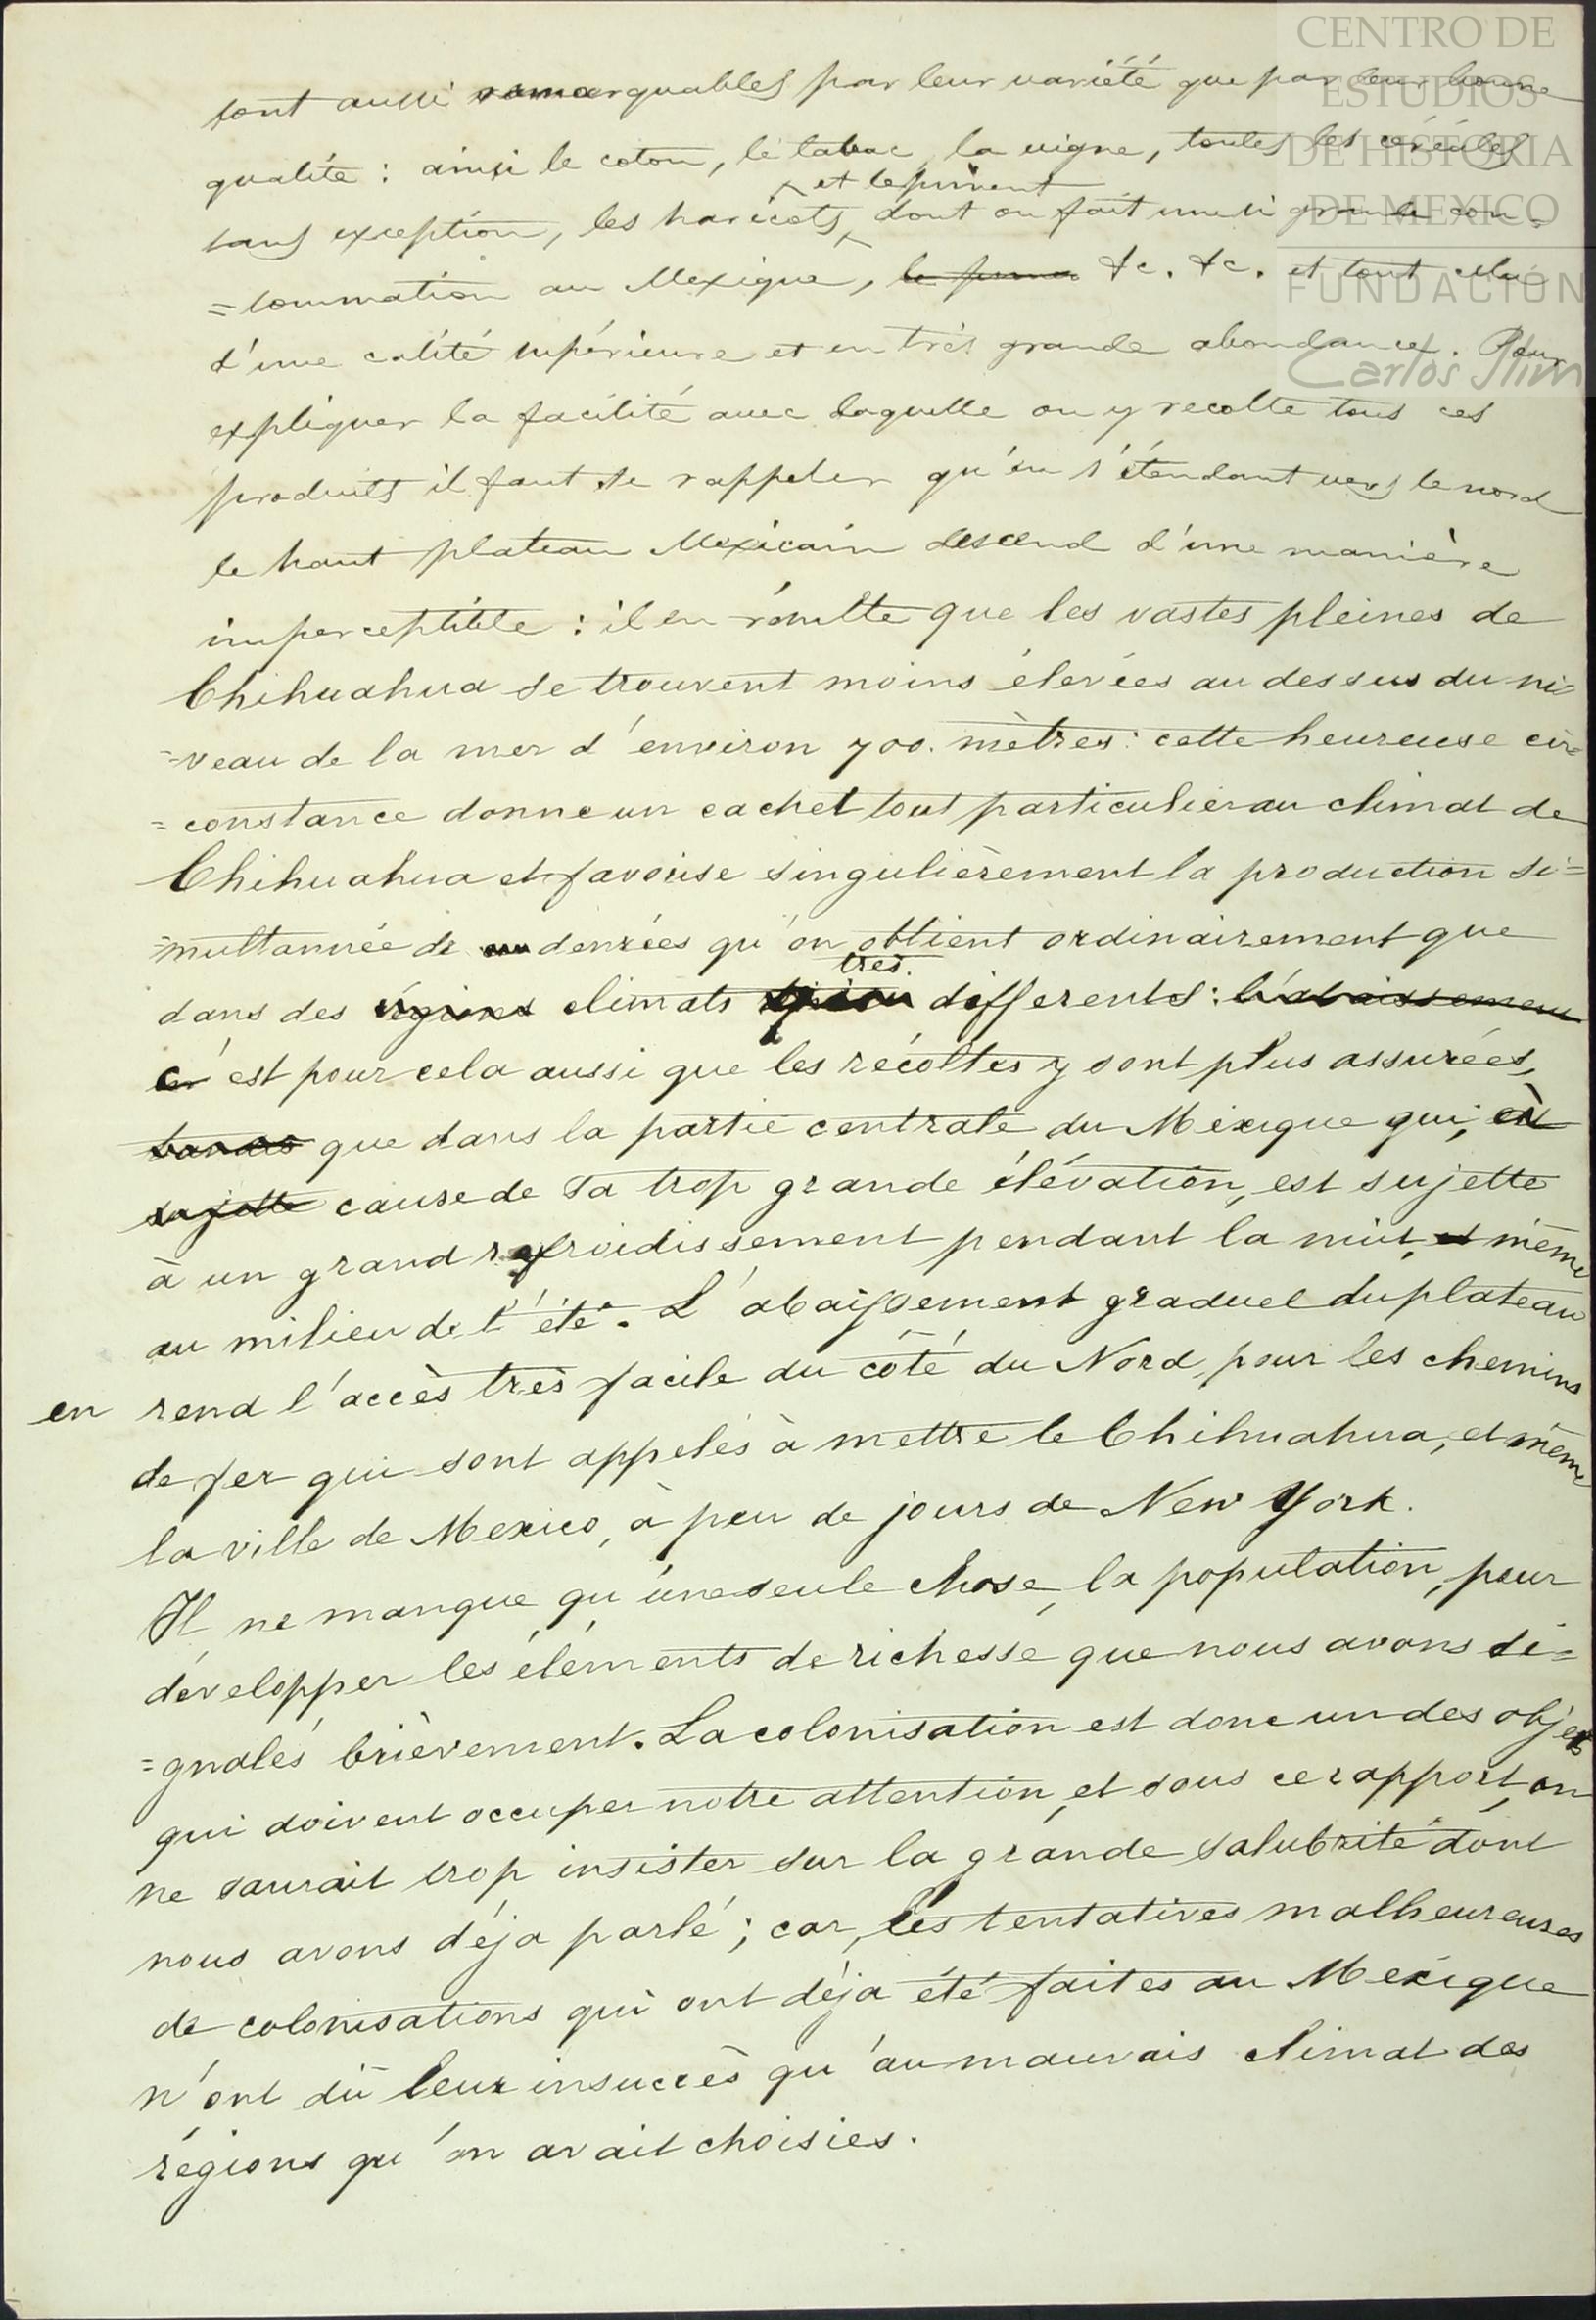 CENTRO DE
ESTUDIOS
DE HISTORIA
DE MEXICO
FUNDACIÓN
Carlos Slim
sont aussi remarquables par leur variété que par leur bonne
qualité : ainsi le coton, le tabac, la vigne, toutes les céréales
et le piment
sans exception, les haricots, dont on fait une si grande con-
=sommation au Mexique, &c. &c. et tout cela
d'une calité supérieure et en très grande abondance. Pour
expliquer la facilité avec laquelle on y recolte tous ces
produits il faut se rappeler qu'en s'étendant vers le nord
le haut plateau Mexicain descend d'une manière
imperceptible : il en résulte que les vastes pleines de
Chihuahua se trouvent moins élevées au dessus du ni=
=veau de la mer d'environ 700. mètres : cette heureuse cir=
=constance donne un cachet tout particulier au climat de
Chihuahua et favorise singulièrement la production si=
=multannée de denrées qu'on obtient ordinairement que
très.
dans des régions climats differents : l'abaissement
c'est pour cela aussi que les récoltes y sont plus assurées,
que dans la partie centrale du Mexique qui, à
sujette cause de sa trop grande élévation, est sujette
à un grand refroidissement pendant la nuit, et même
au milieu de l'été. L'abaissement graduel du plateau
en rend l'accès très facile du côté du Nord, pour les chemins
de fer qui sont appelés à mettre le Chihuahua, et même
la ville de Mexico, à peu de jours de New York.
Il ne manque qu'une seule chose, la population, pour
développer les éléments de richesse que nous avons si=
=gnalés brièvement. La colonisation est donc un des objets
qui doivent occuper notre attention, et sous ce rapport, on
ne saurait trop insister sur la grande salubrité dont
nous avons déja parlé ; car, les tentatives malheureuses
de colonisations qui ont déja été faites au Mexique
n'ont dû leur insuccès qu'au mauvais climat des
régions qu'on avait choisies.